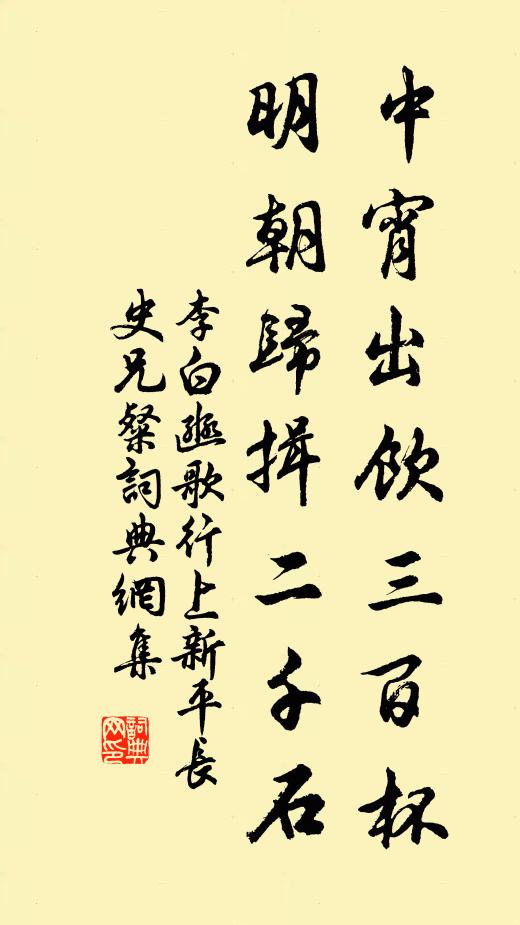 中宵出飲三百杯
明朝歸揖二千石
李白豳歌行上新平長
史兄粲詞典網集
詞典網印